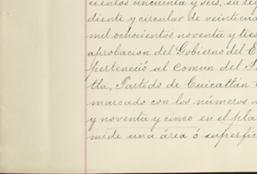 cientos cincuenta y seis, su re
diente y circular de veinticin
mil ochocientos noventa y tres
aprobacion del Gobierno del E
perteneció al Comun del P
tla, Partido de Cuicatlán
marcado con los números
y noventa y cinco en el pla
mide una área ó superfic